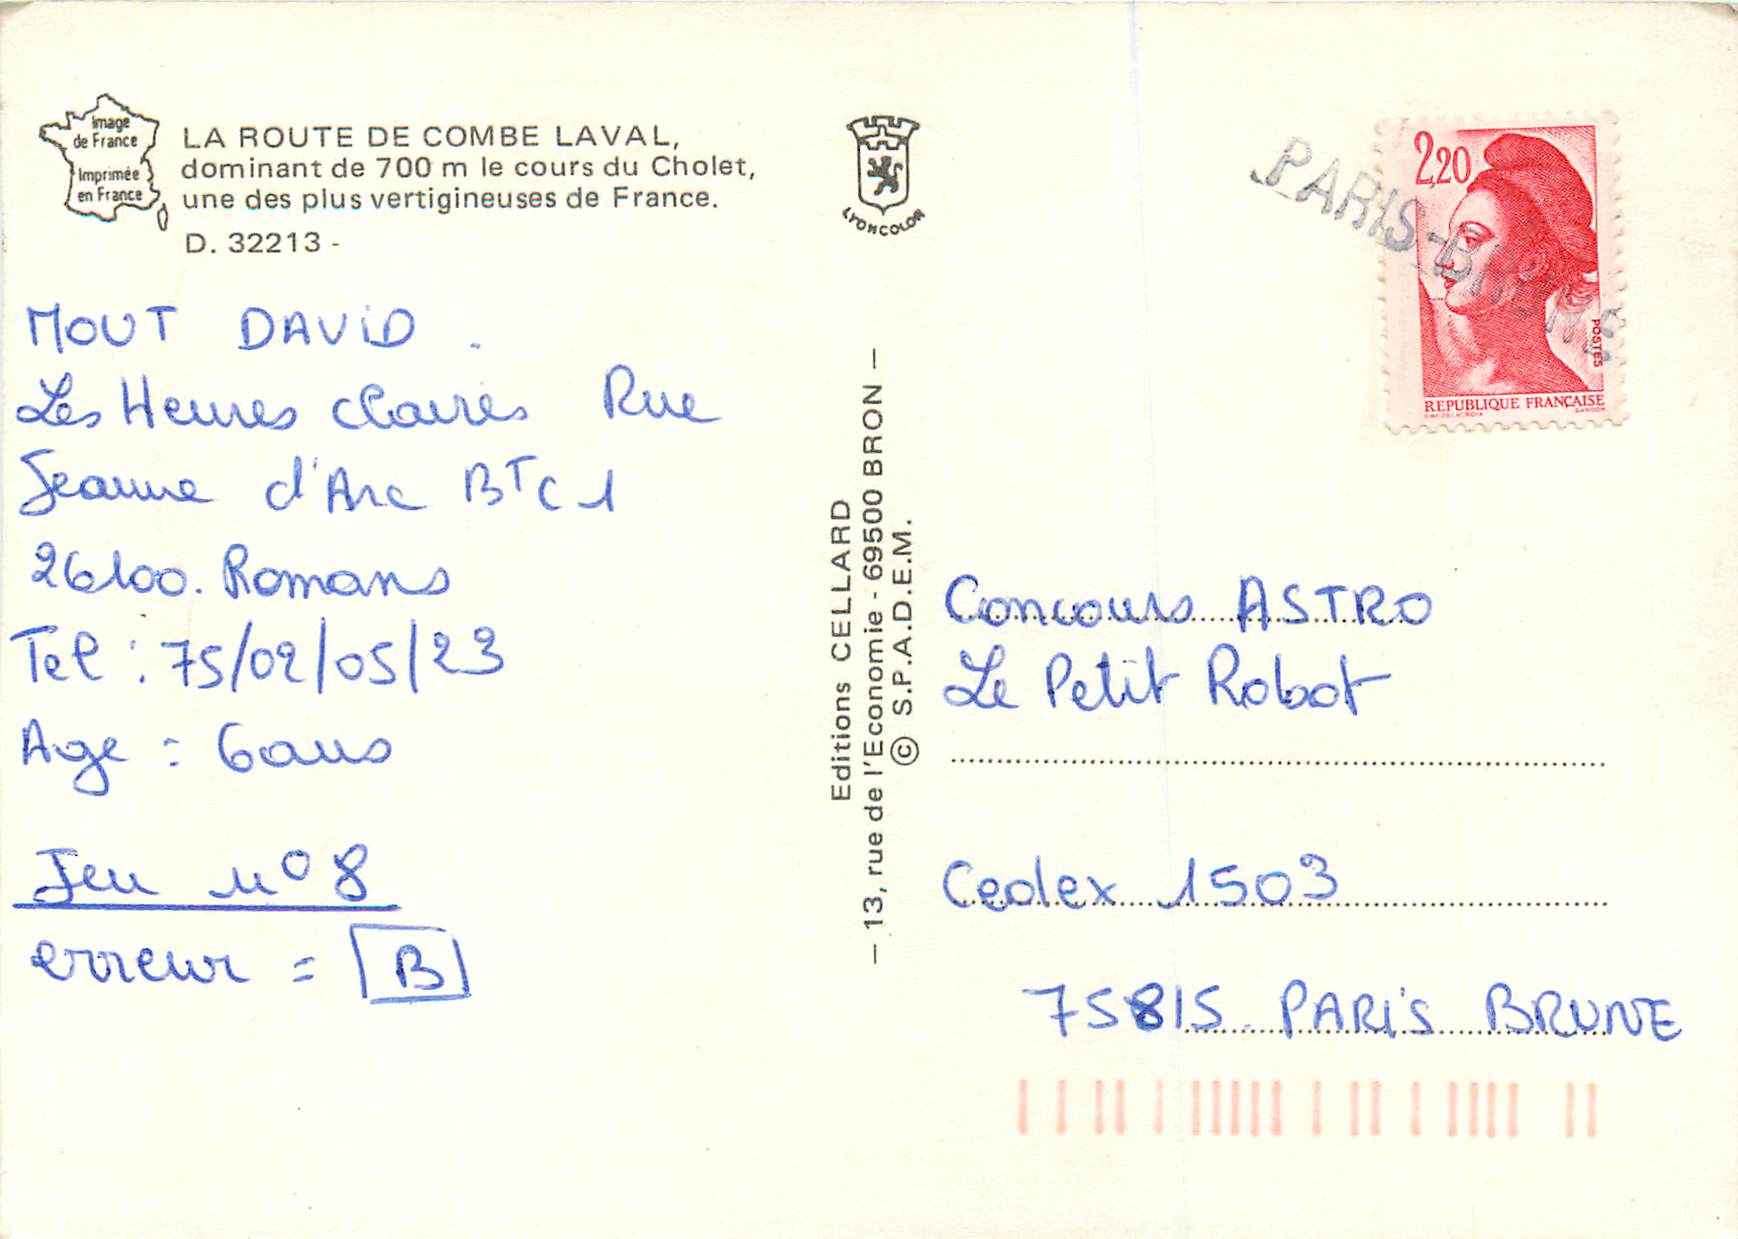 Image
de France
Imprimée
en France
LA ROUTE DE COMBE LAVAL,
dominant de 700 m le cours du Cholet,
une des plus vertigineuses de France.
D. 32213 -
MOUT DAVID.
Les Heures claires Rue
Jeanne d'Arc BTC1
26100. Romans
Tel : 75/02/05/23
Age : 6 ans
Jeu n° 8
erreur = B
LYONCOLOR
Editions CELLARD
— 13, rue de l'Economie - 69500 BRON —
© S.P.A.D.E.M.
PARIS-BRUNE
2,20
POSTES
REPUBLIQUE FRANÇAISE
GANDON
Concours ASTRO
Le Petit Robot
Cedex 1503
75815 PARIS BRUNE